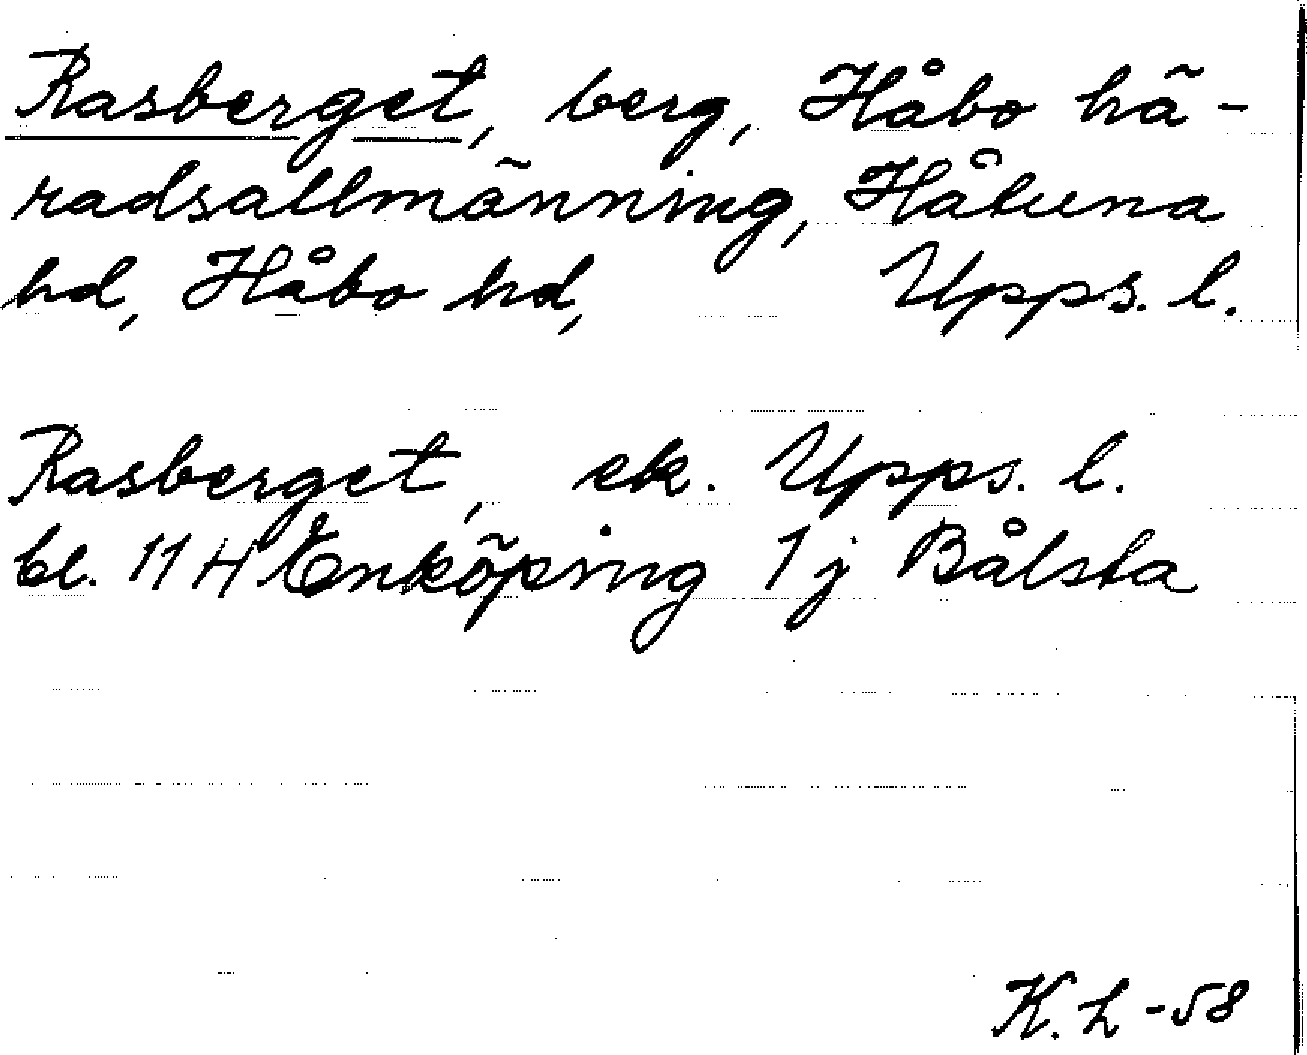 Rasberget, berg, Håbo hä-
radsallmänning, Håtuna
hd, Håbo hd, Upps. l.
Rasberget, ek. Upps. l.
bl. 11 H Enköping 1 j Bålsta
K. L -58